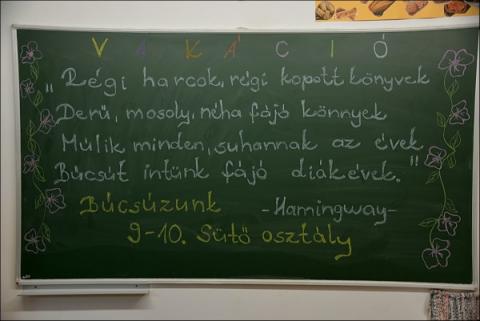 VAKÁCIÓ
„Régi harcok, régi kopott könyvek
Derű, mosoly, néha fájó könnyek
Múlik minden, suhannak az évek
Búcsút intünk fájó diákévek."
Búcsúzunk -Hamingway-
9-10. Sütő osztály